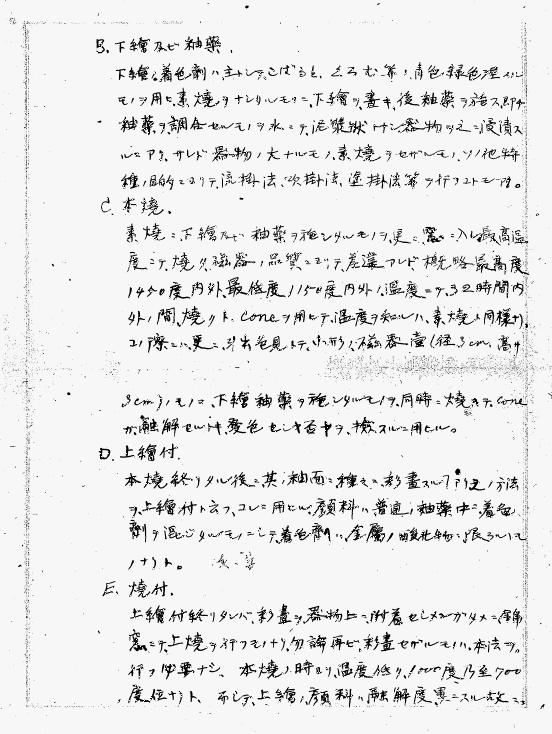 B. 下繪及ビ釉薬.
下繪ノ着色劑ハ主トシテこばると、くろむ等ノ青色緑色湼スル
モノヲ用ヒ素燒ヲナシタルモノニ下繪ヲ畫キ後釉薬ヲ施ス即チ
釉薬ヲ調合セルモノヲ水ニテ泥漿狀トナシ器物ヲ之ニ浸漬ス
ルニアリ、サレド器物ノ大ナルモノ、素燒ヲセザルモノ、ソノ他特
種ノ目的ニヨリテ流掛法、吹掛法、塗掛法等ヲ行フコトモアリ。
C. 本燒.
素燒ニ下繪及ビ釉薬ヲ施シタルモノヲ更ニ窯ニ入レ最高温
度ニテ燒ク、磁器ノ品質ニヨリテ差違アレド概略最高度
1450度内外最低度1150度内外ノ温度ニテ32時間内
外ノ間燒クト. coneヲ用ヒテ温度ヲ知ルハ素燒ト同樣ナリ.
コノ際ニハ更ニ引出色見トテ、小形ノ磁器壷(徑3cm, 高サ
3cm)ノモノニ下繪釉薬ヲ施シタルモノヲ同時ニ燒キテcone
ガ融解セルトキ發色セシキ否ヤヲ檢スルニ用ヒル。
D. 上繪付.
本燒終リタル後ニ其ノ釉面ニ種々ニ彩畫スルアリ之ノ方法
ヲ上繪付ト云フ、コレニ用ヒル顔料ハ普通ノ釉薬中ニ着色
劑ヲ混ジタルモノニシテ着色劑ハ金屬ノ酸化物ニ限ラルルモ
ノナリト。
E. 燒付.
上繪付終リタレバ彩畫ヲ器物上ニ附着セシメンガタメニ錦
窯ニテ上燒ヲ行フモノナリ、勿論再ビ彩畫セザルモノハ本法ヲ
行フ必要ナシ、本燒ノ時ヨリ温度低ク、1000度乃至700
度位ナリト、而シテ上繪ノ顔料ハ融解度異ニスル故ニ